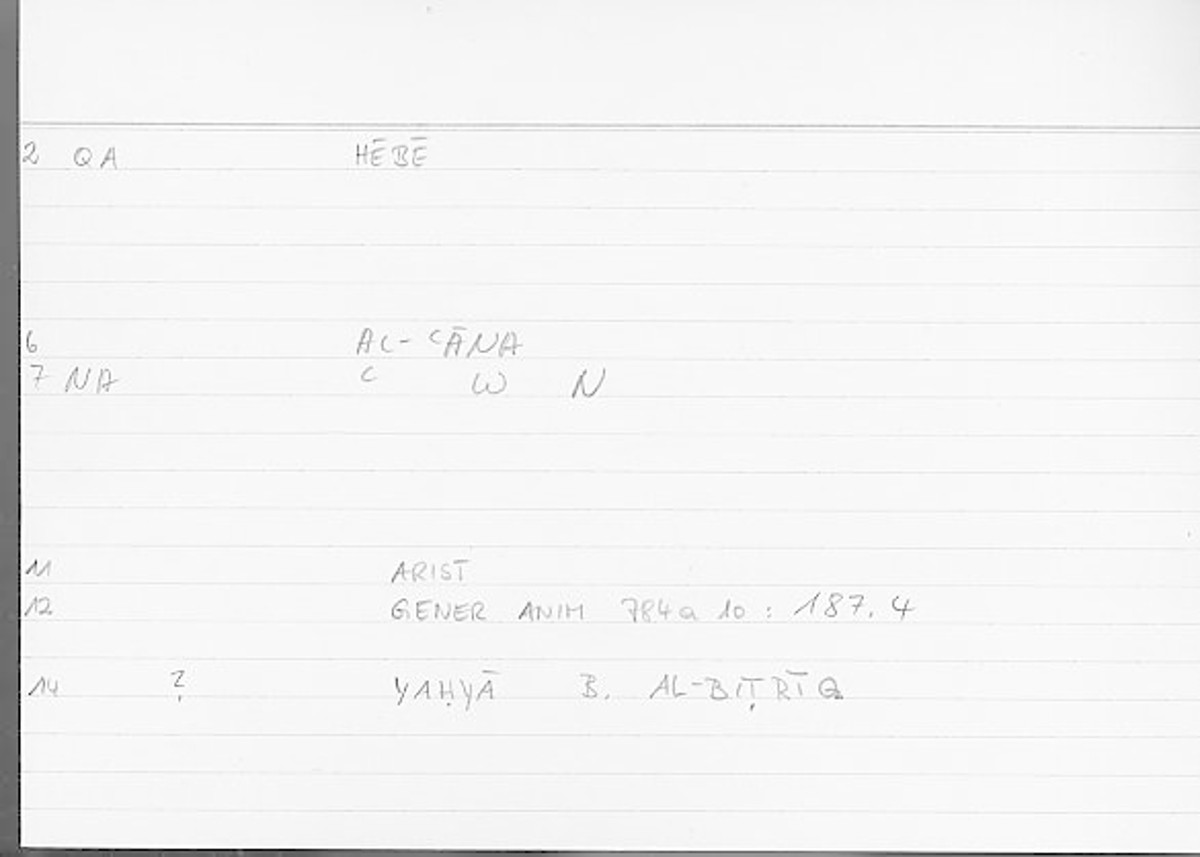 2 QA HĒBĒ
6 AL-ʿĀNA
7 NA ʿ W N
11 ARIST
12 GENER ANIM 784a 10 : 187.4
14 ? YAḤYĀ B. AL-BIṬRĪQ